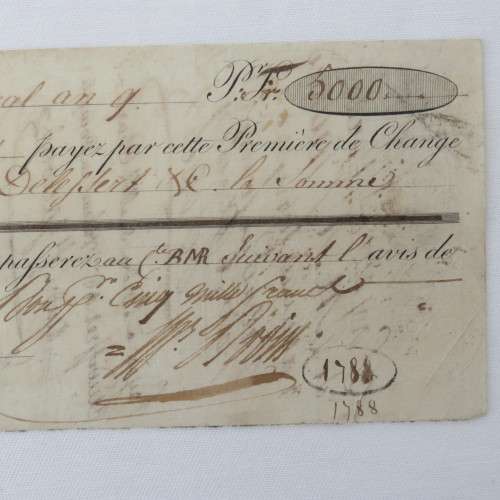 al an 9. P.r Fr. 5000
payez par cette Première de Change
Delessert & C. la Somme
passerez au Cte. RMR Suivant l'avis de
Bon pr. Cinq mille francs
1788
1788